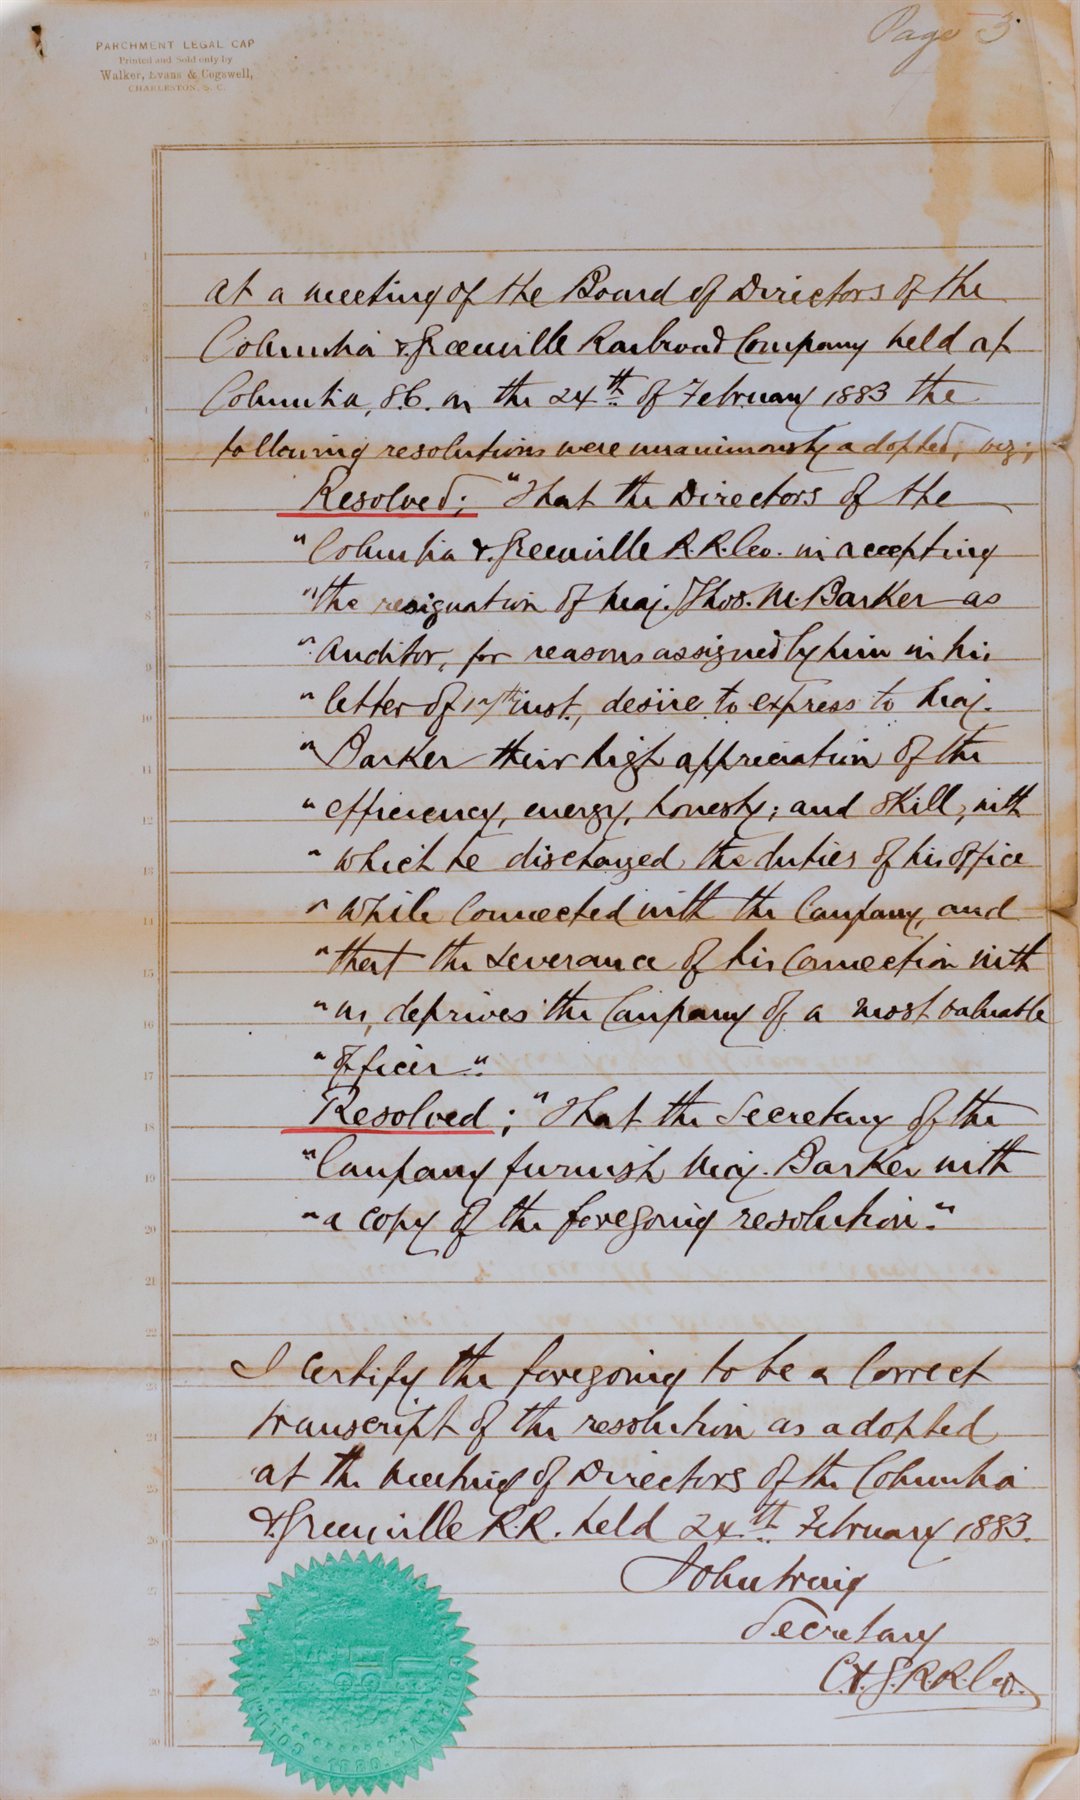 Page 3
PARCHMENT LEGAL CAP
Printed and Sold only by
Walker, Evans & Cogswell,
CHARLESTON, S. C.
At a meeting of the Board of Directors of the
Columbia & Greenville Railroad Company held at
Columbia, S.C. on the 24th of February 1883 the
following resolutions were unanimously adopted; viz;
Resolved; "That the Directors of the
"Columbia & Greenville R.R. Co. in accepting
"the resignation of Maj. Thos. M. Barker as
"Auditor, for reasons assigned by him in his
"letter of 17th inst, desire to express to Maj.
"Barker their high appreciation of the
"efficiency, energy, honesty; and skill, with
"which he discharged the duties of his office
"while connected with the Company, and
"that the severance of his connection with
"us, deprives the Company of a most valuable
"officer."
Resolved; "That the Secretary of the
"Company furnish Maj. Barker with
"a copy of the foregoing resolution."
I certify the foregoing to be a correct
transcript of the resolution as adopted
at the meeting of Directors of the Columbia
& Greenville R.R. held 24th February 1883.
John Craig
Secretary
C. & G. R. R. Co.
1880